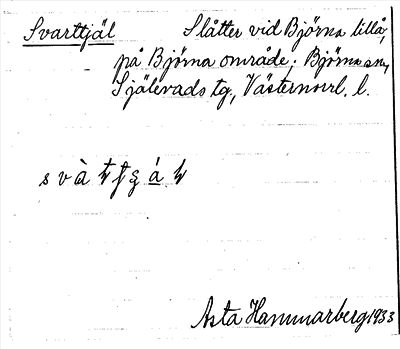 Svarttjäl Slåtter vid Björna lillå,
på Björna område; Björna sn,
Själevads tg, Västernorrl. l.
Asta Hammarberg 1933